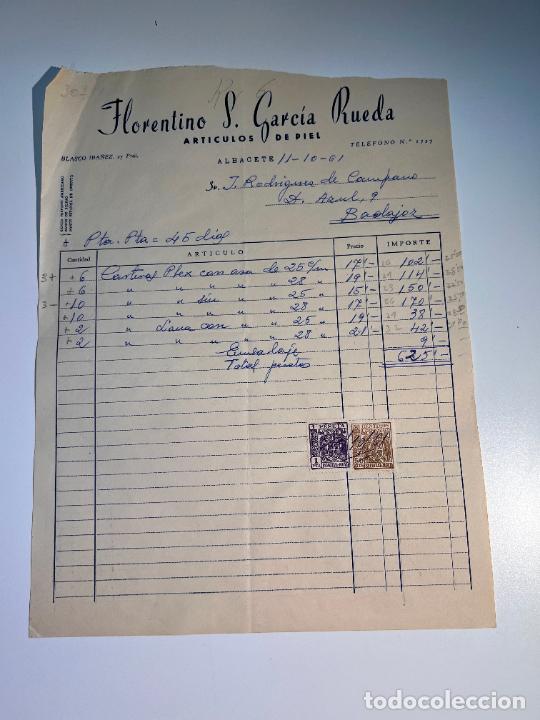 Florentino S. García Rueda
ARTICULOS DE PIEL
BLASCO IBAÑEZ, 17 Pral.
TELEFONO N.º 1717
ALBACETE 11-10-61
Sr. J. Rodriguez de Campano
A. Azul, 9
Badajoz
Pta. Pta = 45 dias
Cantidad ARTICULO Precio IMPORTE
6 Carteras Plex con asa de 25 c/m 17'- 102'-
6 " " " " 28 " 19'- 114'-
10 " " sin " 25 " 15'- 150'-
10 " " " " 28 " 17'- 170'-
2 " Lona con " 25 " 19'- 38'-
2 " " " " 28 " 21'- 42'-
Embalaje 9'-
Total pesetas 625'-
todocoleccion.net